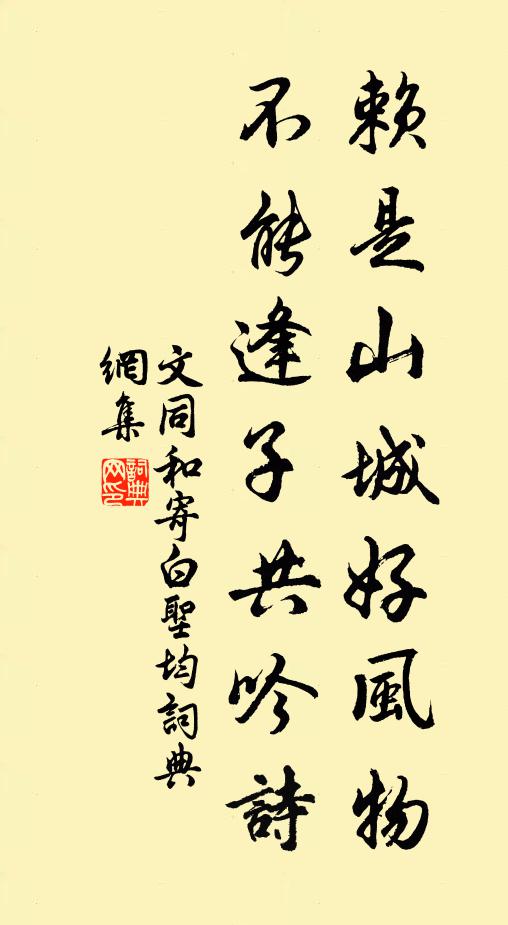 賴是山城好風物
不能逢子共吟詩
文同和寄白聖均詞典
網集
詞典網印